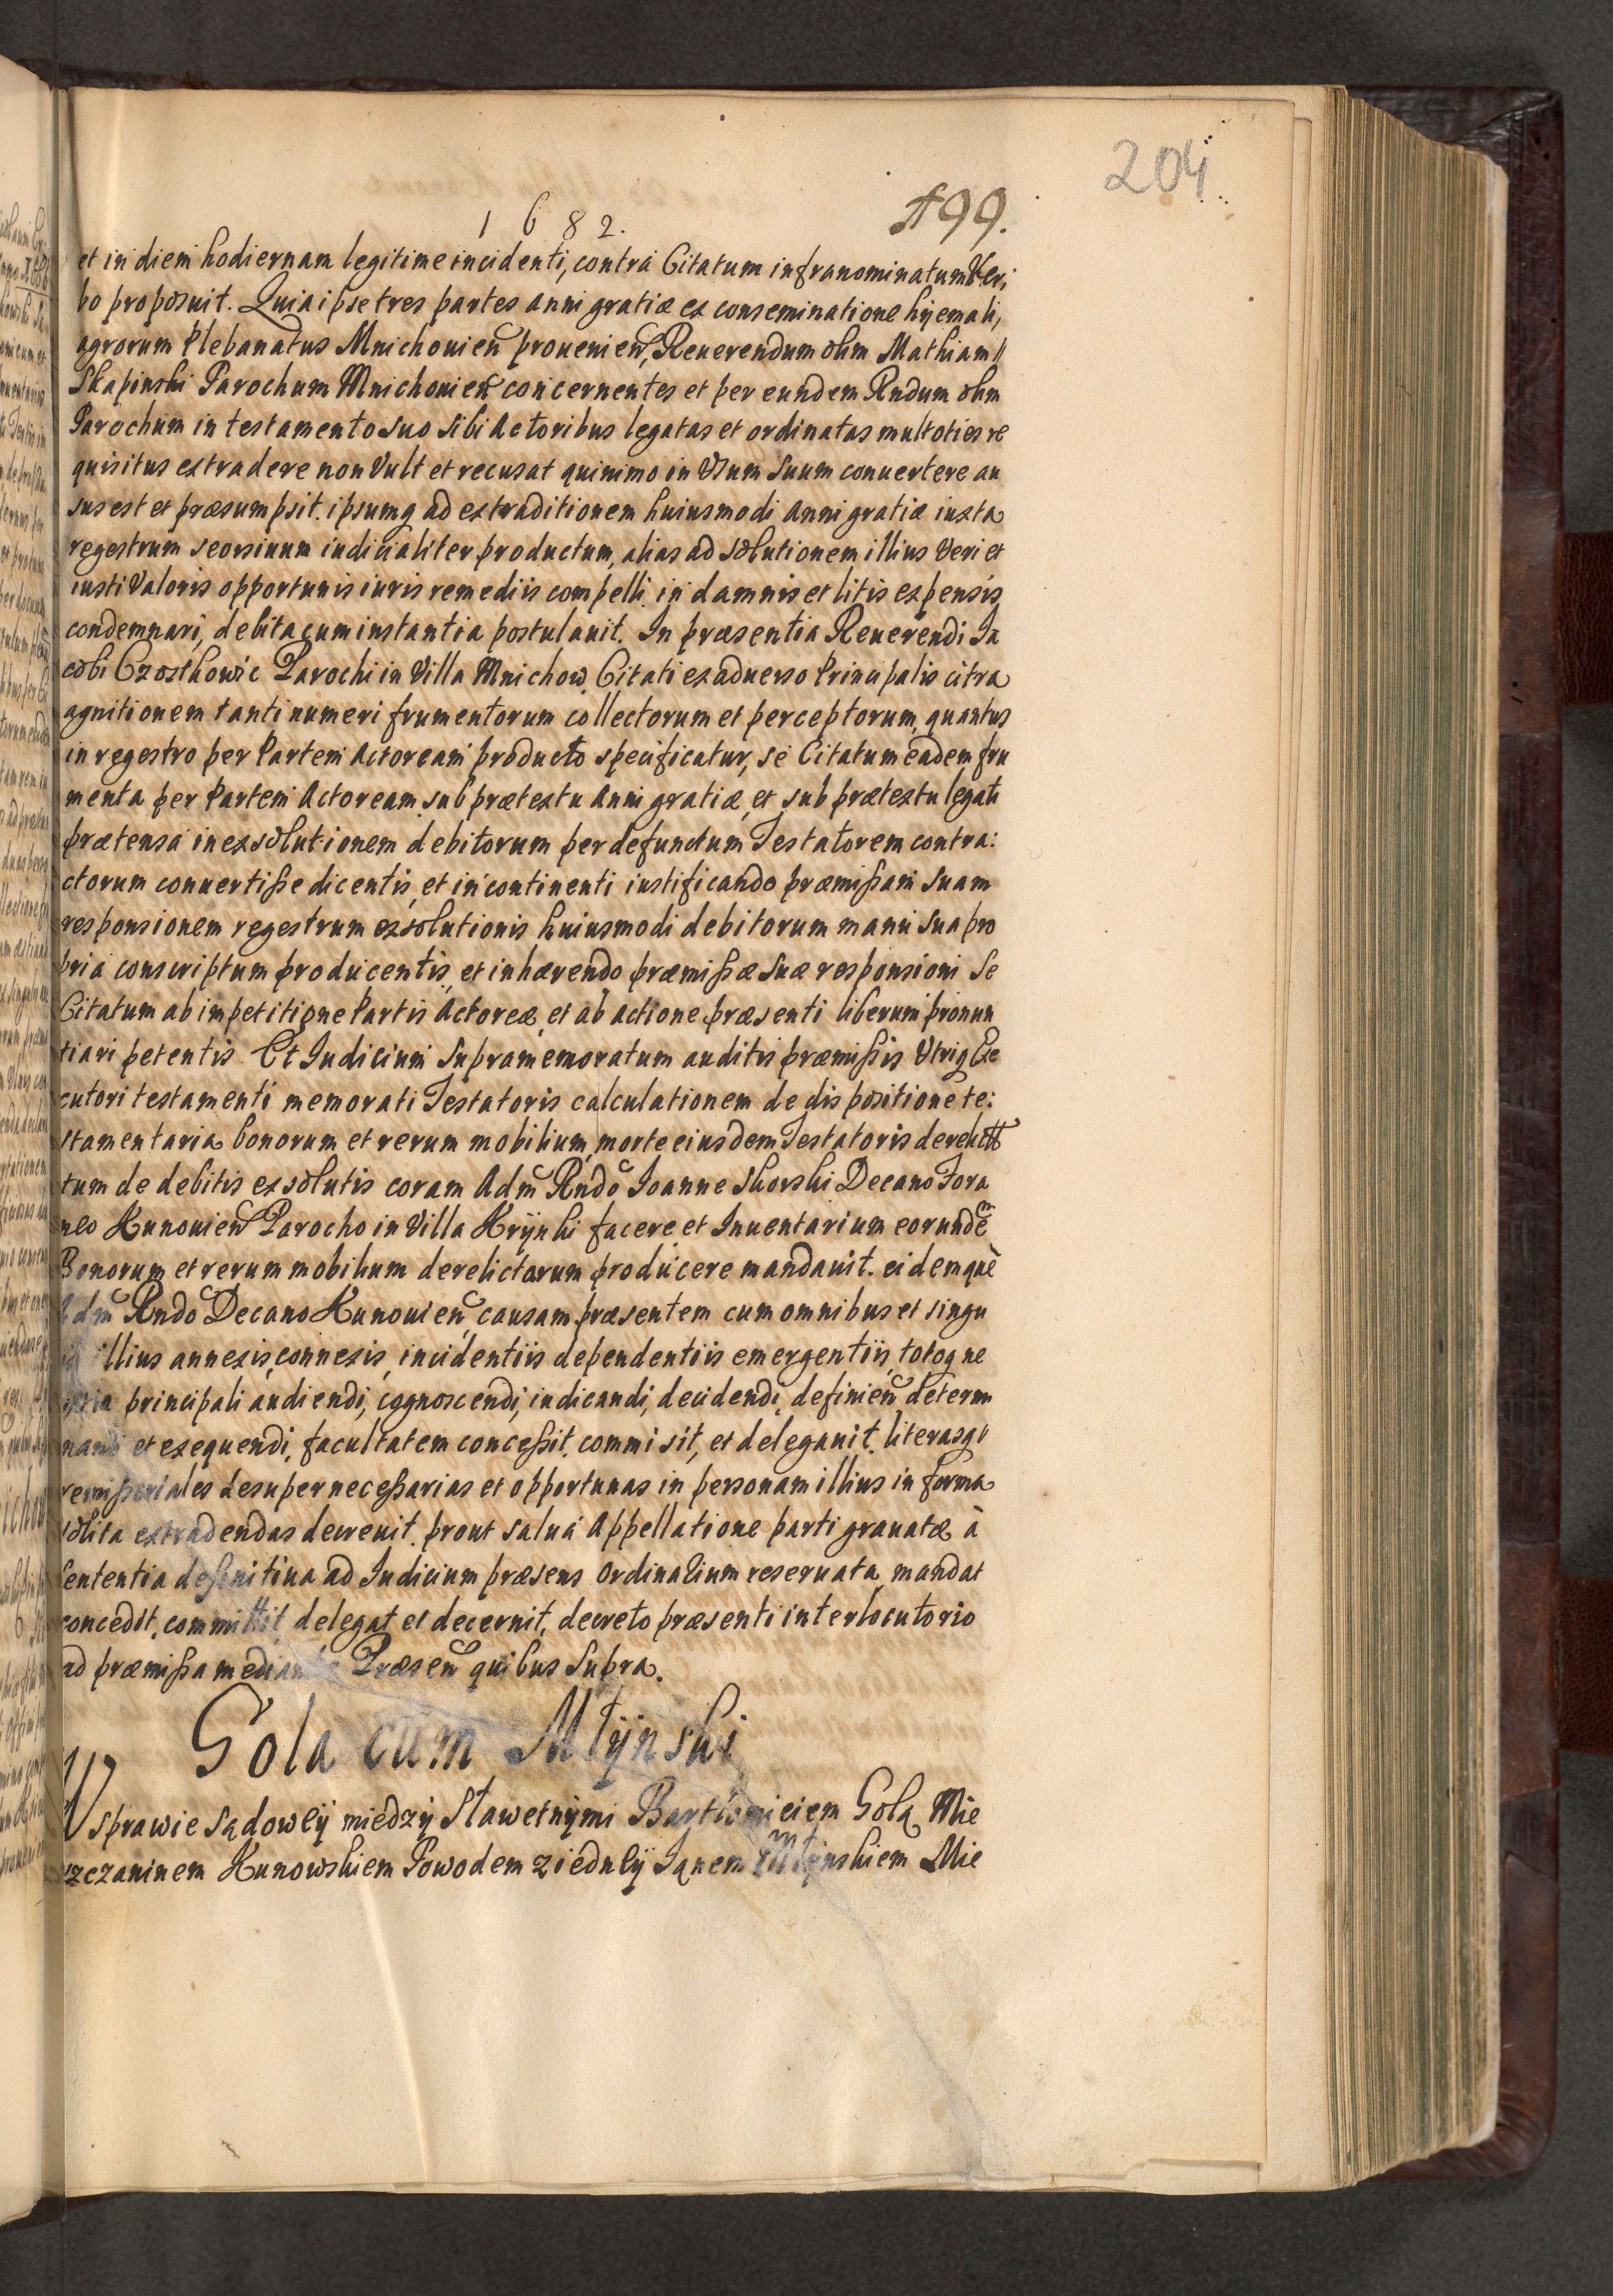 204
1682.
199.
et in diem hodiernam legitime incidenti, contra Citatum infranominatum Ver,
bo proposuit. Quia ipse tres partes anni gratiæ ex conseminatione hyemali,
agrorum Plebanatus Mnichouien prouenien, Reuerendum olim Mathiam
Skapinski Parochum Mnichouien concernentes et per eundem Rndum olim
Parochum in testamento suo sibi Actoribus legatas et ordinatas multoties re
quisitus extradere non Vult et recusat quinimo in Vsum suum conuertere au
sus est et præsumpsit. ipsumq ad extraditionem huiusmodi Anni gratiæ iuxta
regestrum seorsiuum iudicialiter productum, alias ad solutionem illius Veri et
iusti Valoris opportunis iuris remediis compelli in damnis et litis expensis
condemnari, debita cum instantia postulauit. In præsentia Reuerendi Ia
cobi Czostkowic Parochi in Villa Mnichow Citati ex aduerso Principalis citra
agnitionem tanti numeri frumentorum collectorum et perceptorum, quantus
in regestro per Partem Actoream producto specificatur, se Citatum eadem fru
menta per Partem Actoream sub prætextu Anni gratiæ, et sub prætextu legati
prætensa in exsolutionem debitorum per defunctum Testatorem contra:
ctorum conuertiße dicentis, et in continenti iustificando præmißam suam
responsionem regestrum exsolutionis huiusmodi debitorum manu sua pro
pria conscriptum producentis, et inhærendo præmißæ suæ responsioni se
Citatum ab impetitione Partis Actoreæ, et ab actione præsenti liberum pronun
tiari petentis Et Iudicium supramemoratum auditis præmißis Vtriq Exe
cutori testamenti memorati Testatoris calculationem de dispositione te:
stamentaria bonorum et rerum mobilium morte eiusdem Testatoris derelict
tum de debitis exsolutis coram Adm Rndo Ioanne Skorski Decano Fora
neo Kunouien Parocho in Villa Krÿnki facere et Inuentarium eorundem
Bonorum et rerum mobilium derelictorum producere mandauit. eidemque
Adm Rndo Decano Kunouien causam præsentem cum omnibus et singu
illius annexis, connexis, incidentiis dependentiis emergentiis, totoq ne
principali audiendi, cognoscendi, iudicandi, decidendi, definien determi
nandi et exequendi, facultatem conceßit, commisit, et delegauit literasq
remißoriales desuper neceßarias et opportunas in personam illius in forma
solita extradendas decreuit. prout salua Appellatione parti grauatæ à
sententia definitiua ad Iudicium præsens Ordinarium reseruata mandat
concedit, committit delegat et decernit, decreto præsenti interlocutorio
ad præmißa mediante Præsen quibus supra.
Gola cum Młÿnski
W sprawie sądoweÿ miedzÿ Sławetnÿmi Bartłomieiem Golą Mie
szczaninem Kunowskiem Powodem ziedneÿ Ianem Młÿnskiem Mie